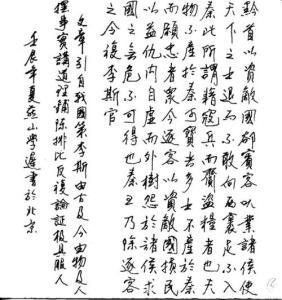 黔首以資敵國卻賓客以業諸侯使
天下之士退而不敢向西裹足不入
秦此所謂藉寇兵而賫盜糧者也夫
物不產於秦可寶者多士不產於秦
而願忠者眾今逐客以資敵國損民
以益仇內自虛而外樹怨於諸侯求
國之無危不可得也秦王乃除逐客
之令復李斯官
文章引自戰國策李斯由古及今由物及人
擺事實講道理鋪陳排比反復論証极具服人
壬辰年夏燕山學邊書於北京